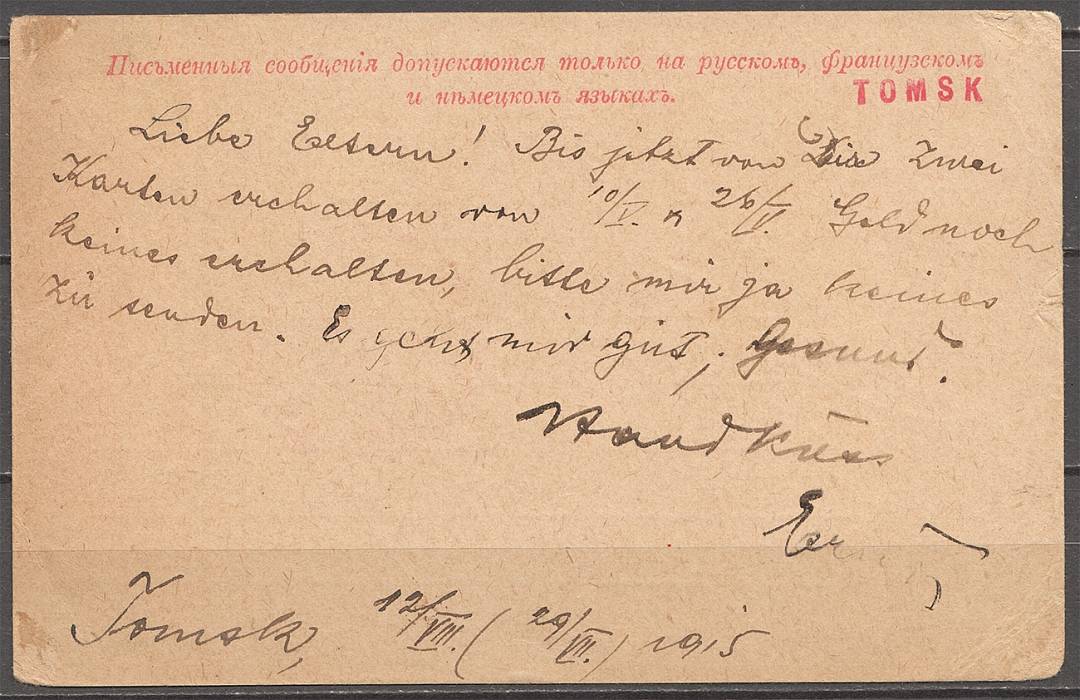 Письменныя сообщенія допускаются только на русскомъ, французскомъ
и нѣмецкомъ языкахъ.
TOMSK
Liebe Eltern! Bis jetzt von zwei
Karten erhalten von 10/V. u 26/V. Geld noch
keines erhalten, bitte mir ja keines
zu senden. Es geht mir gut, Gesund.
Handkuss
Tomsk, 12/VIII. (29/VII.) 1915